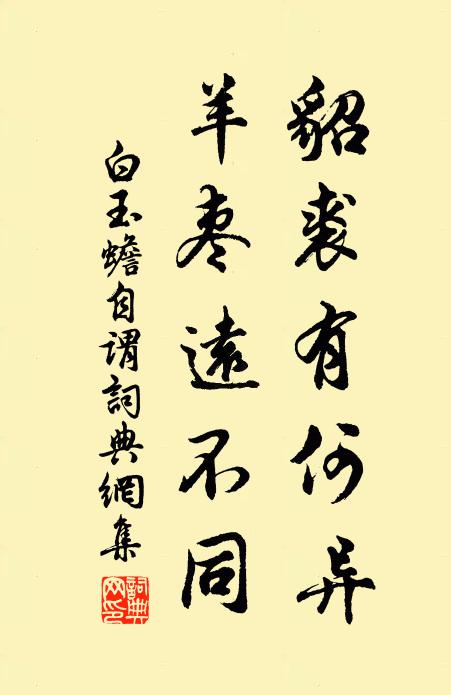 貂裘有何异
羊枣遠不同
白玉蟾自谓詞典網集
詞典网印